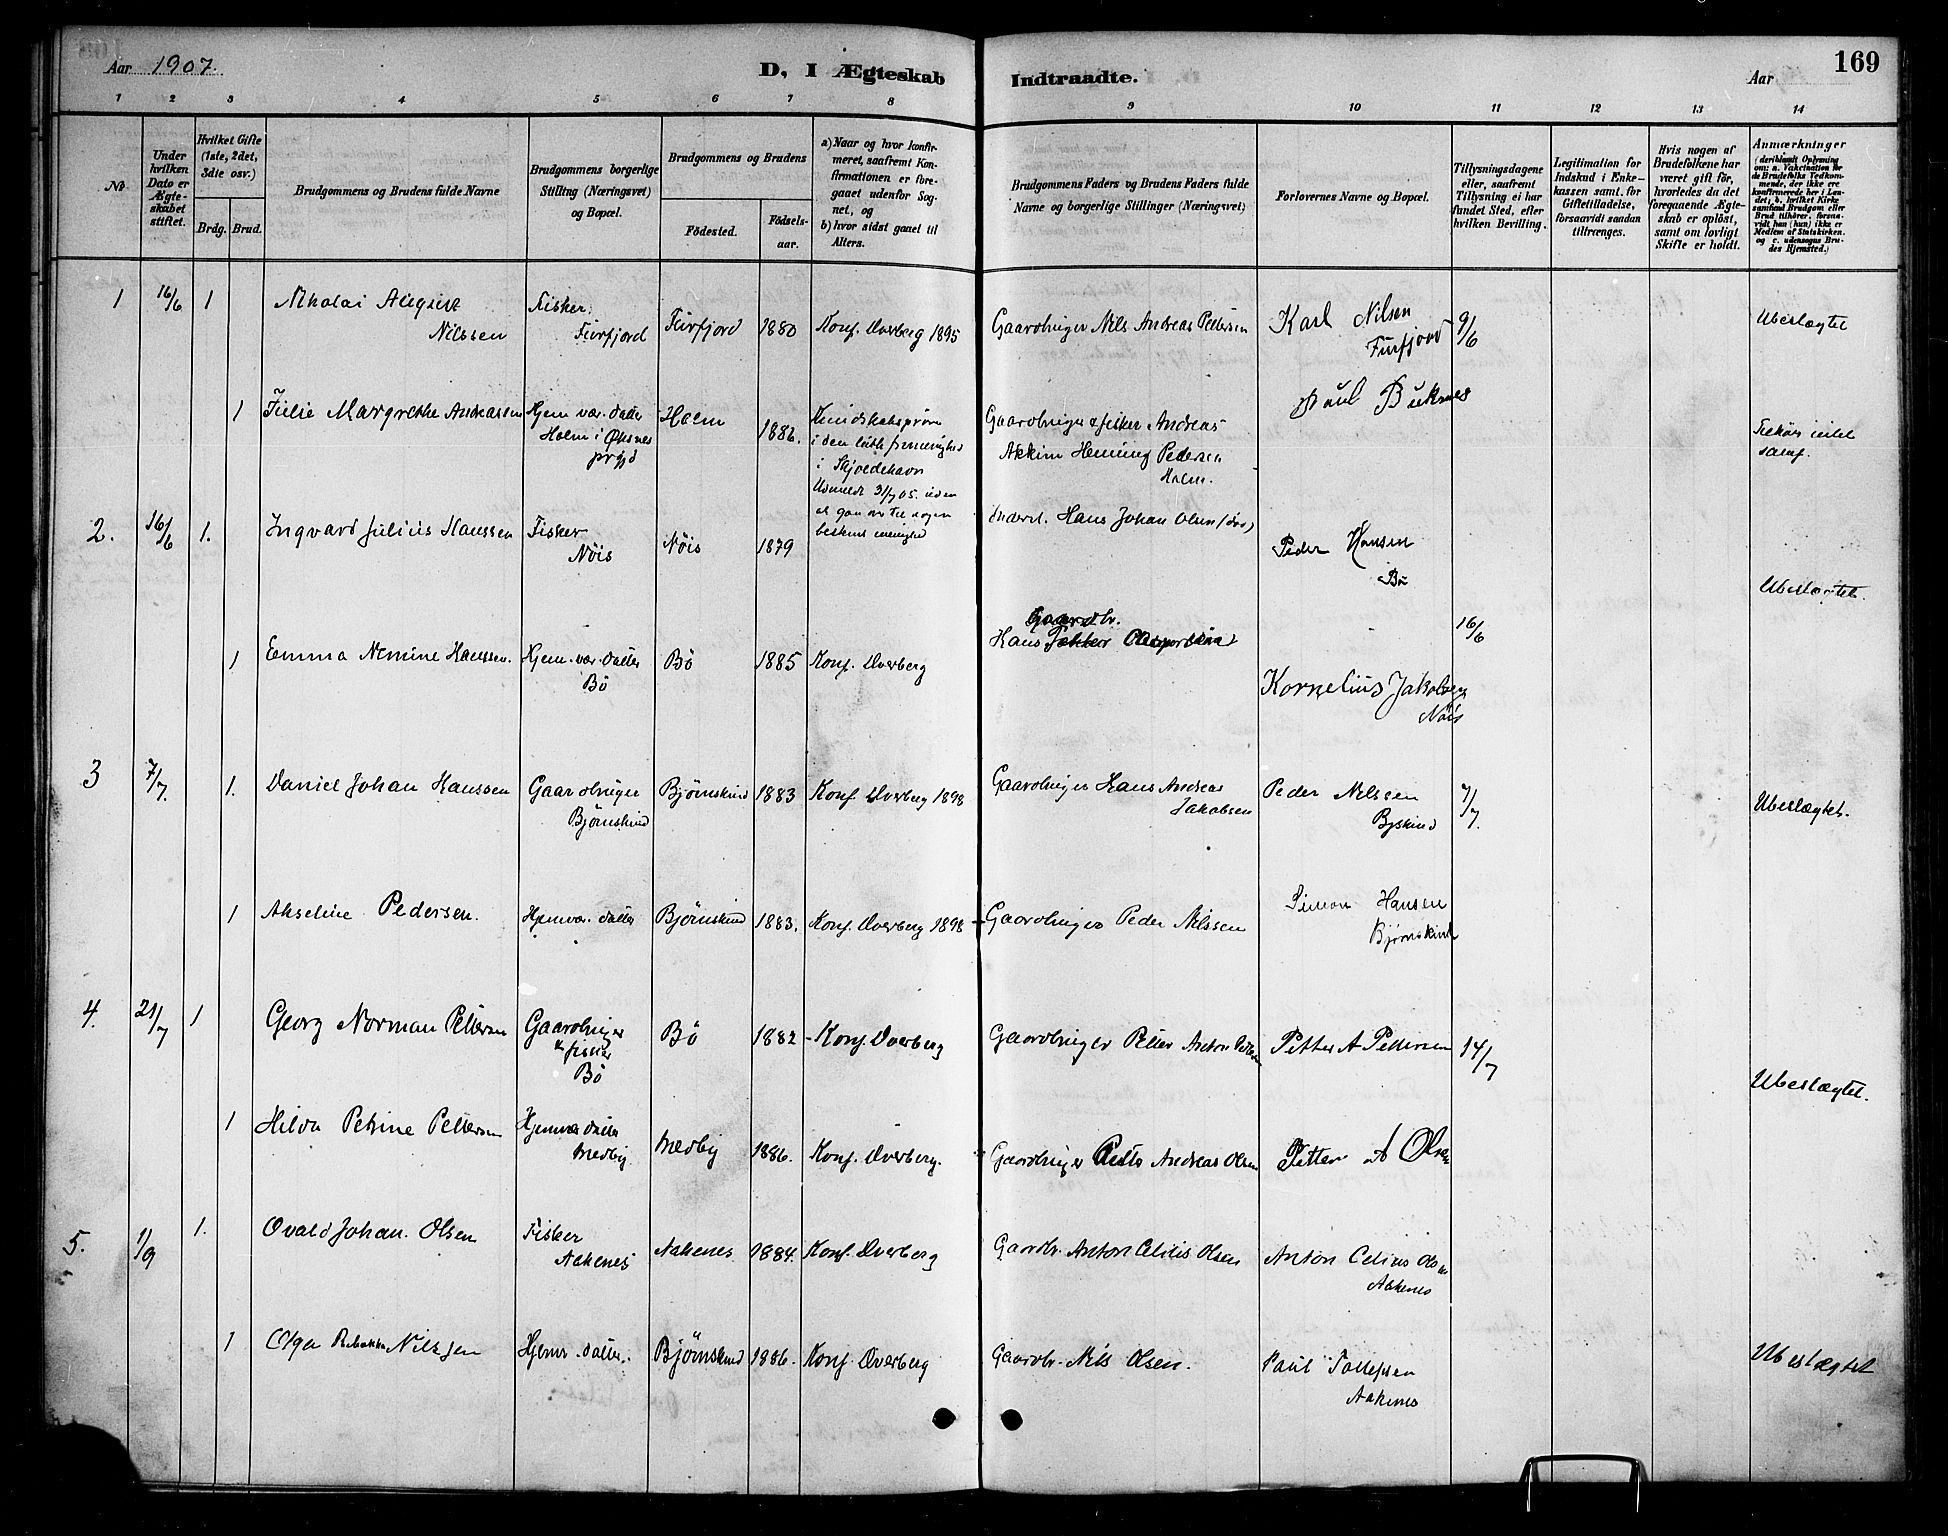 Aar 1907.
D, I Ægteskab
Indtraadte.
Aar
169
1 2 3 4 5 6 7 8
9 10 11 12 13 14
No.
Under hvilken Dato er Ægteskabet stiftet.
Hvilket Gifte (1ste, 2det, 3die osv.)
Brdg. Brud.
Brudgommens og Brudens fulde Navne
Brudgommens borgerlige Stilling (Næringsvei) og Bopæl.
Brudgommens og Brudens
Fødested.
Fødselsaar.
a) Naar og hvor konfirmeret, saafremt Konfirmationen er foregaaet udenfor Sognet, og
b) hvor sidst gaaet til Alters.
Brudgommens Faders og Brudens Faders fulde Navne og borgerlige Stillinger (Næringsvei)
Forlovernes Navne og Bopæl.
Tillysningsdagene eller, saafremt Tillysning ei har fundet Sted, efter hvilken Bevilling.
Legitimation for Indskud i Enkekassen samt. for Giftetilladelse, forsaavidt saadan tiltrænges.
Hvis nogen af Brudefolkene har været gift før, hvorledes da det foregaaende Ægteskab er opløst, samt om lovligt Skifte er holdt.
Anmærkninger
(deriblandt Oplysning om: a. Vakcination for de Brudefolks Vedkommende, der ikke ere konfirmerede her i Landet; b. hvilket Kirkesamfund Brudgom eller Brud tilhører, forsaavidt han (hun) ikke er Medlem af Statskirken, og c. udensogns Brudes Hjemsted.)
1 16/6 1 Nikolai August Nilssen
Fisker, Furfjord
Furfjord 1880 Konf. Dverberg 1895
Gaardbruger Nils Andreas Pettersen
Karl Nilsen Furfjord
9/6
Ubeslægtet
1 Julie Margrethe Andreassen
Hjem. vær. datter Holm i Øksnes prgjd
Holm 1882.
Kundskabsprøve i den luth. frimenighed i Skjoldehavn Udmeldt 31/7 05. uden at gaa over til nogen
Gaardbruger & fisker Andreas Akkim Henning Pedersen Holm.
Paul Buknes
2. 16/6 1. Ingvard Julius Hanssen
Fisker Nöis
Nöis 1879
Hans Johan Olsen
Peder Hansen Bö
Ubeslægtet.
1 Emma Nemine Hanssen.
Hjem. vær. datter Bö
Bö 1885 Konf. Dverberg
Gaardbr. Hans
16/6
Kornelius Jakobsen Nöis
3 7/7. 1. Daniel Johan Hanssen
Gaardbruger Bjørnskind
Bjørnskind 1883 Konf. Dverberg 1898
Gaardbruger Hans Andreas Jakobsen
Peder Nilssen Bjskind
7/7.
Ubeslægtet.
1 Akseline Pedersen.
Hjemvær. datter
Bjørnskind 1883. Konf. Dverberg 1898
Gaardbruger Peder Nilssen
Simon Hansen Bjørnskind
4. 21/7 1 Georg Norman Pettersen
Gaardbruger & fisker Bö
Bö 1882 - Konf. Dverberg
Gaardbruger Petter Anton Pettersen
Petter A Pettersen
14/7
Ubeslægtet.
1 Hilda Petrine Pettersen
Hjemvær datter Medby
Medby 1886. Konf. Dverberg.
Gaardbruger Petter Andreas Olsen
Petter A Olsen
5. 1/9 1. Ovald Johan. Olsen
Fisker Aakenes
Aakenes 1884. Konf. Dverberg
Gaardbr. Anton Celius Olsen
Anton Celius Olsen Aakenes
1 Olga Rebakka Nilssen
Hjemv. datter.
Bjørnskind 1886. Konf. Dverberg
Gaardbr. Nils Olsen.
Paul Tollefsen Aakenes
Ubeslægtet